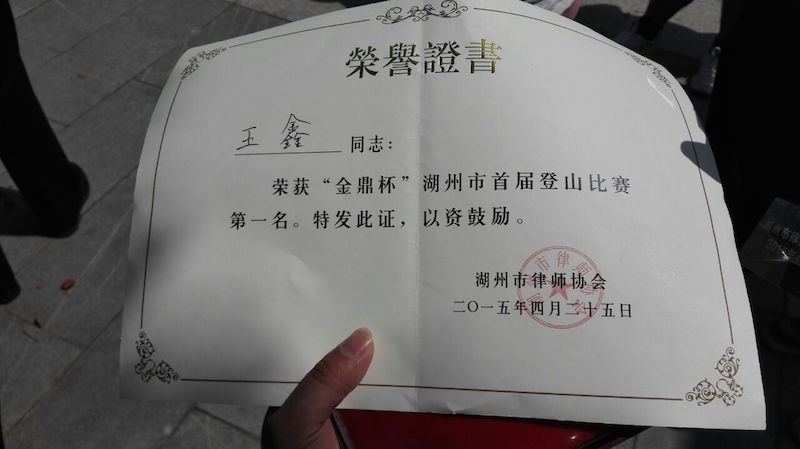 榮譽證書
王鑫 同志：
荣获“金鼎杯”湖州市首届登山比赛
第一名。特发此证，以资鼓励。
湖州市律师协会
二〇一五年四月二十五日